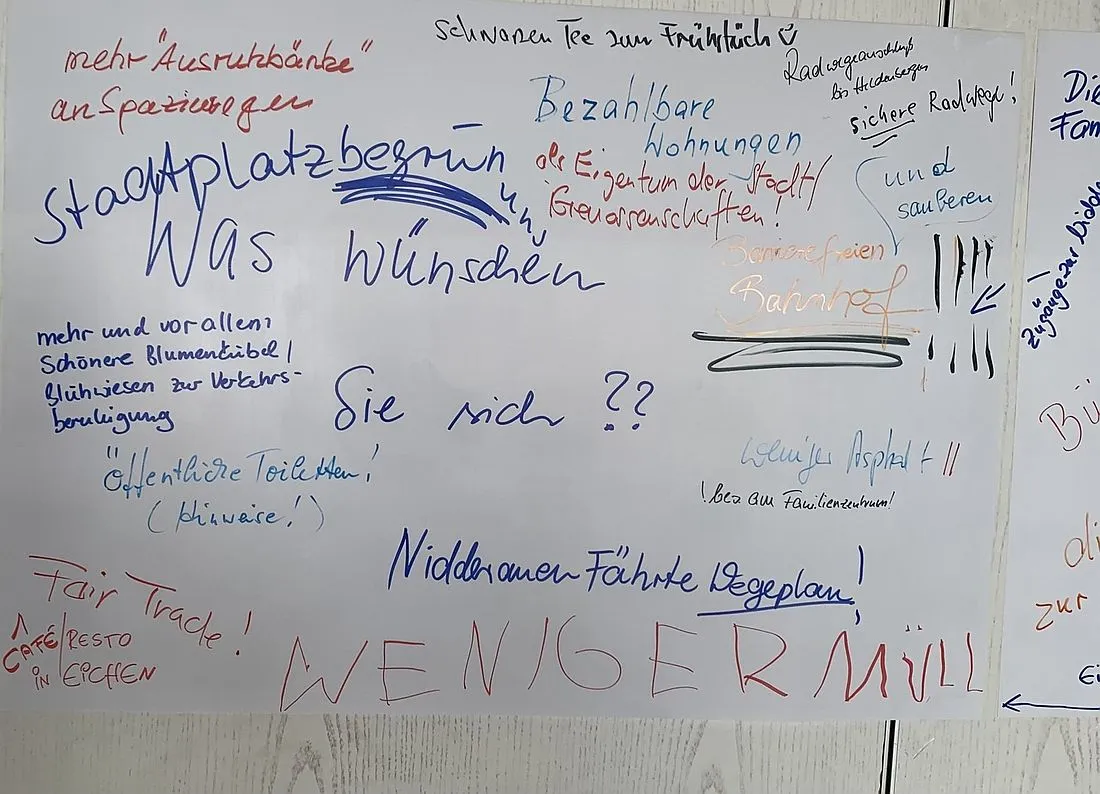 schwarzen Tee zum Frühstück
mehr "Ausruhbänke"
an Spazierwegen
Radwegeanschluß
bis Heldenbergen
sichere Radwege!
Bezahlbare
Wohnungen
als Eigentum der Stadt/
Genossenschaften!
und
sauberen
Barrierefreien
Bahnhof
Stadtplatzbegrün
ung
Was wünschen
Sie sich ??
mehr und vor allem
Schönere Blumenkübel/
Blühwiesen zur Verkehrs-
beruhigung
Öffentliche Toiletten!
(Hinweise!)
weniger Asphalt !!
!bes am Familienzentrum!
Nidderauen Fährte Wegeplan!
Fair Trade!
CAFÉ/RESTO
IN EICHEN
WENIGER MÜLL
Die
Fam
Zugänge zur Nidder
Bü
di
zur
Ei